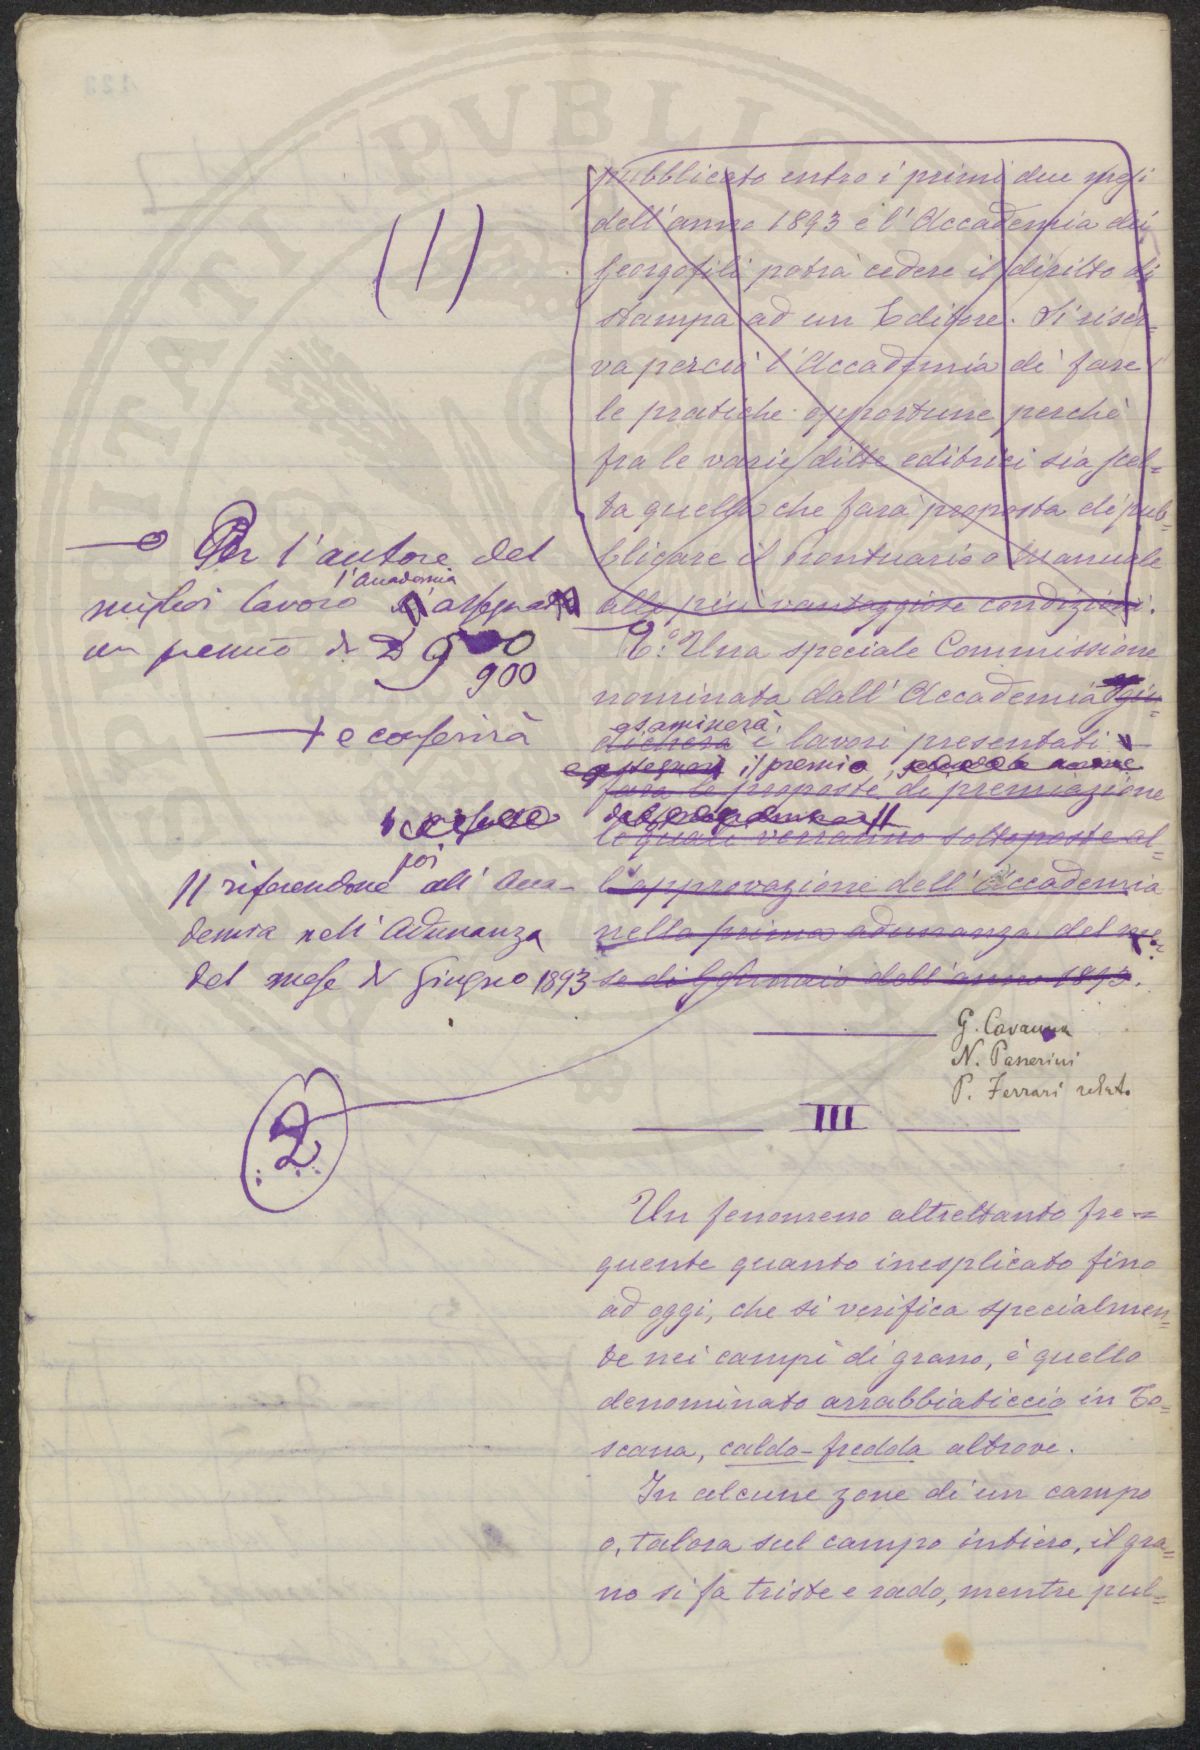 PVBLICAE
VTILITATI
(1)
pubblicato entro i primi due mesi
dell'anno 1893 e l'Accademia dei
Georgofili potrà cedere il diritto di
stampa ad un Editore. Si riser=
va perciò l'Accademia di fare
le pratiche opportune perchè
fra le varie ditte editrici sia scel=
ta quella che farà proposta di pub=
blicare il Prontuario o Manuale
alle più vantaggiose condizioni.
Per l'autore del
l'Accademia
miglior lavoro assegna
un premio di
900
6.° Una speciale Commissione
nominata dall'Accademia giu=
esaminerà
dicherà i lavori presentati
+ e conferirà
il premio
farà le proposte di premiazione
le quali verranno sottoposte al=
poi
// riferendone all'Acca=
demia nell'Adunanza
del mese di Giugno 1893
l'approvazione dell'Accademia
nella prima adunanza del me=
se di Gennaio dell'anno 1893.
G. Cavanna
N. Passerini
P. Ferrari relat.
2
III
Un fenomeno altrettanto fre=
quente quanto inesplicato fino
ad oggi, che si verifica specialmen=
te nei campi di grano, è quello
denominato arrabbiaticcio in To=
scana, caldo-fredda altrove.
In alcune zone di un campo
o, talora sul campo intiero, il gra=
no si fa triste e rado, mentre pul=